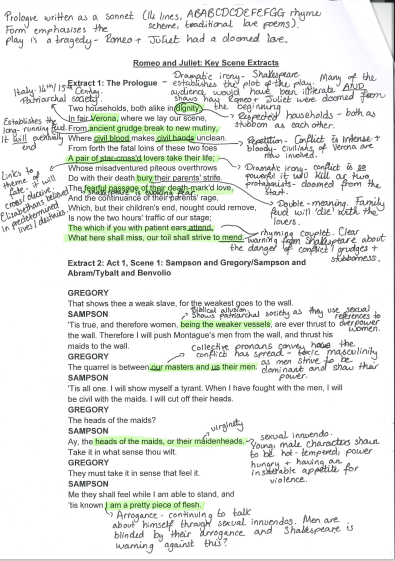 Prologue written as a sonnet (14 lines, ABABCDCDEFEFGG rhyme
Form emphasises the scheme, traditional love poems).
play is a tragedy - Romeo + Juliet had a doomed love.
Romeo and Juliet: Key Scene Extracts
Dramatic irony - Shakespeare
establishes the plot of the play. Many of the
audience would have been illiterate AND
shows how Romeo + Juliet were doomed from
the beginning
Extract 1: The Prologue
Italy - 14th/15th Century.
Patriarchal society.
Two households, both alike in dignity
In fair Verona, where we lay our scene,
Respected households - both as
stubborn as each other.
Establishes the
long-running feud.
It will eventually
end
From ancient grudge break to new mutiny,
Where civil blood makes civil hands unclean.
Repetition - Conflict is intense +
bloody. civilians of Verona are
now involved.
From forth the fatal loins of these two foes
A pair of star-cross'd lovers take their life;
Links to
theme of
fate - it will
cross/deceive.
Elizabethans believed
in predetermined
lives/destinies.
Whose misadventured piteous overthrows
Dramatic irony - conflict is so
powerful it will kill our two
protagonists - doomed from the
start.
Do with their death bury their parents' strife.
The fearful passage of their death-mark'd love,
Shakespeare is evoking fear
And the continuance of their parents' rage,
Double-meaning. Family
feud will 'die' with the
lovers.
Which, but their children's end, nought could remove,
Is now the two hours' traffic of our stage;
The which if you with patient ears attend,
What here shall miss, our toil shall strive to mend.
rhyming couplet. Clear
warning from Shakespeare about
the danger of conflict, grudges +
stubbornness.
Extract 2: Act 1, Scene 1: Sampson and Gregory/Sampson and
Abram/Tybalt and Benvolio
GREGORY
That shows thee a weak slave, for the weakest goes to the wall.
Biblical allusion
Shows patriarchal society as they use sexual
references to
overpower
women.
SAMPSON
'Tis true, and therefore women, being the weaker vessels, are ever thrust to
the wall. Therefore I will push Montague's men from the wall, and thrust his
maids to the wall.
Collective pronouns convey how the
conflict has spread - toxic masculinity
as men strive to be
dominant and show their
power.
GREGORY
The quarrel is between our masters and us their men.
SAMPSON
'Tis all one. I will show myself a tyrant. When I have fought with the men, I will
be civil with the maids. I will cut off their heads.
GREGORY
The heads of the maids?
virginity
SAMPSON
Ay, the heads of the maids, or their maidenheads.
Take it in what sense thou wilt.
sexual innuendo.
Young male characters shown
to be hot-tempered, power
hungry + having an
insatiable appetite for
violence.
GREGORY
They must take it in sense that feel it.
SAMPSON
Me they shall feel while I am able to stand, and
'tis known I am a pretty piece of flesh.
Arrogance - continuing to talk
about himself through sexual innuendos. Men are
blinded by their arrogance and Shakespeare is
warning against this?